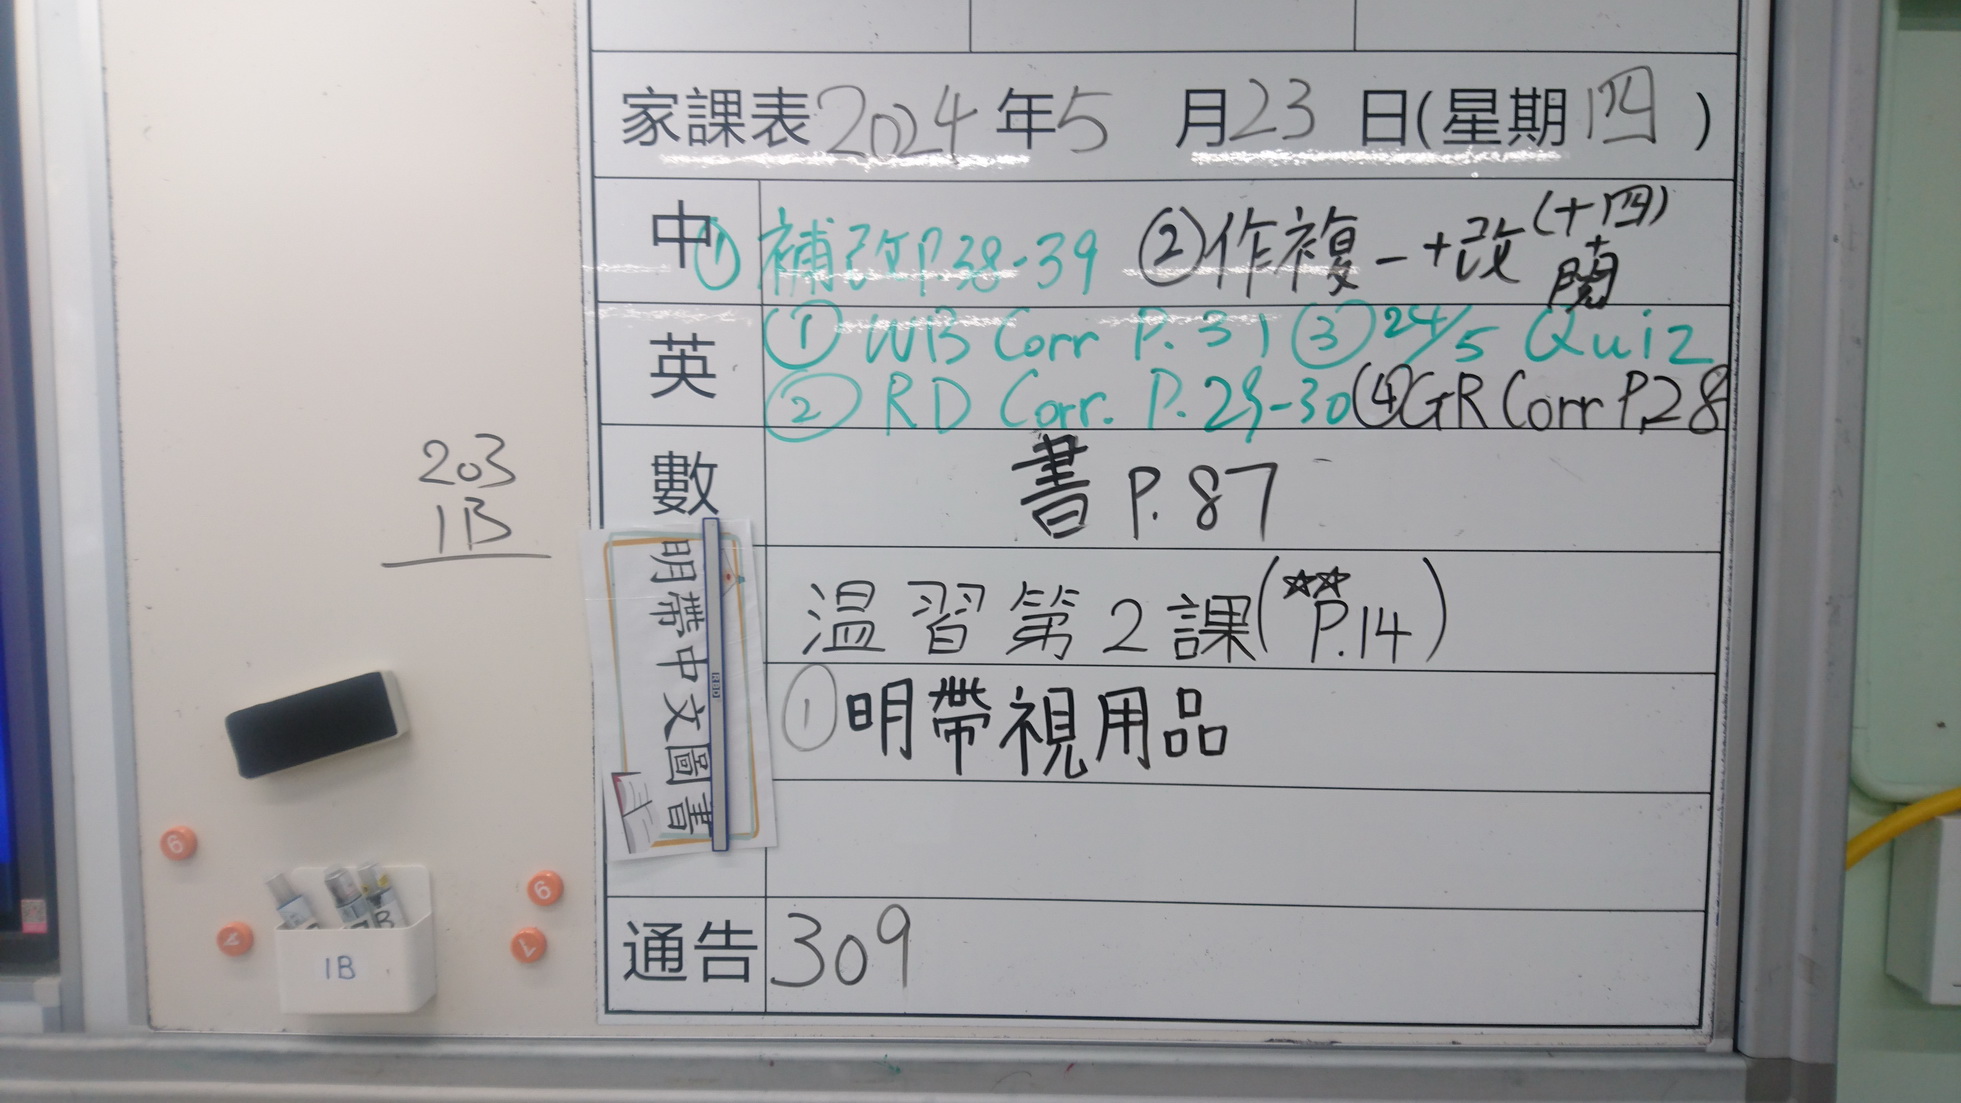 家課表2024年5月23日(星期四)
中 ①補改P.38-39 ②作複一+改(十四)
+閱
英 ①WB Corr P.31 ③24/5 Quiz
②RD Corr. P.29-30 ④GR Corr P.28
數 書 P.87
溫習第2課(☆☆P.14)
①明帶視用品
通告 309
明帶中文圖書
203
1B
1B